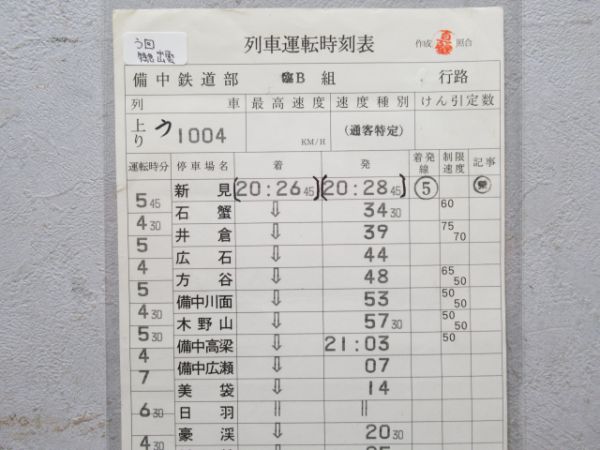 う回
特急 出雲
列車運転時刻表
作成 照合
備中鉄道部 臨B 組 行路
列 車 最高速度 速度種別 けん引定数
上り う1004 KM/H (通客特定)
運転時分 停車場名 着 発 着発線 制限速度 記事
新見 20:26 45 20:28 45 ⑤
5 45
石蟹 ⇩ 34 30 60
4 30
井倉 ⇩ 39 75 70
5
広石 ⇩ 44
4
方谷 ⇩ 48 65 50
5
備中川面 ⇩ 53 50 50
4 30
木野山 ⇩ 57 30 50 50
5 30
備中高梁 ⇩ 21:03 50
4
備中広瀬 ⇩ 07
7
美袋 ⇩ 14
6 30
日羽 || ||
豪渓 ⇩ 20 30
4 30